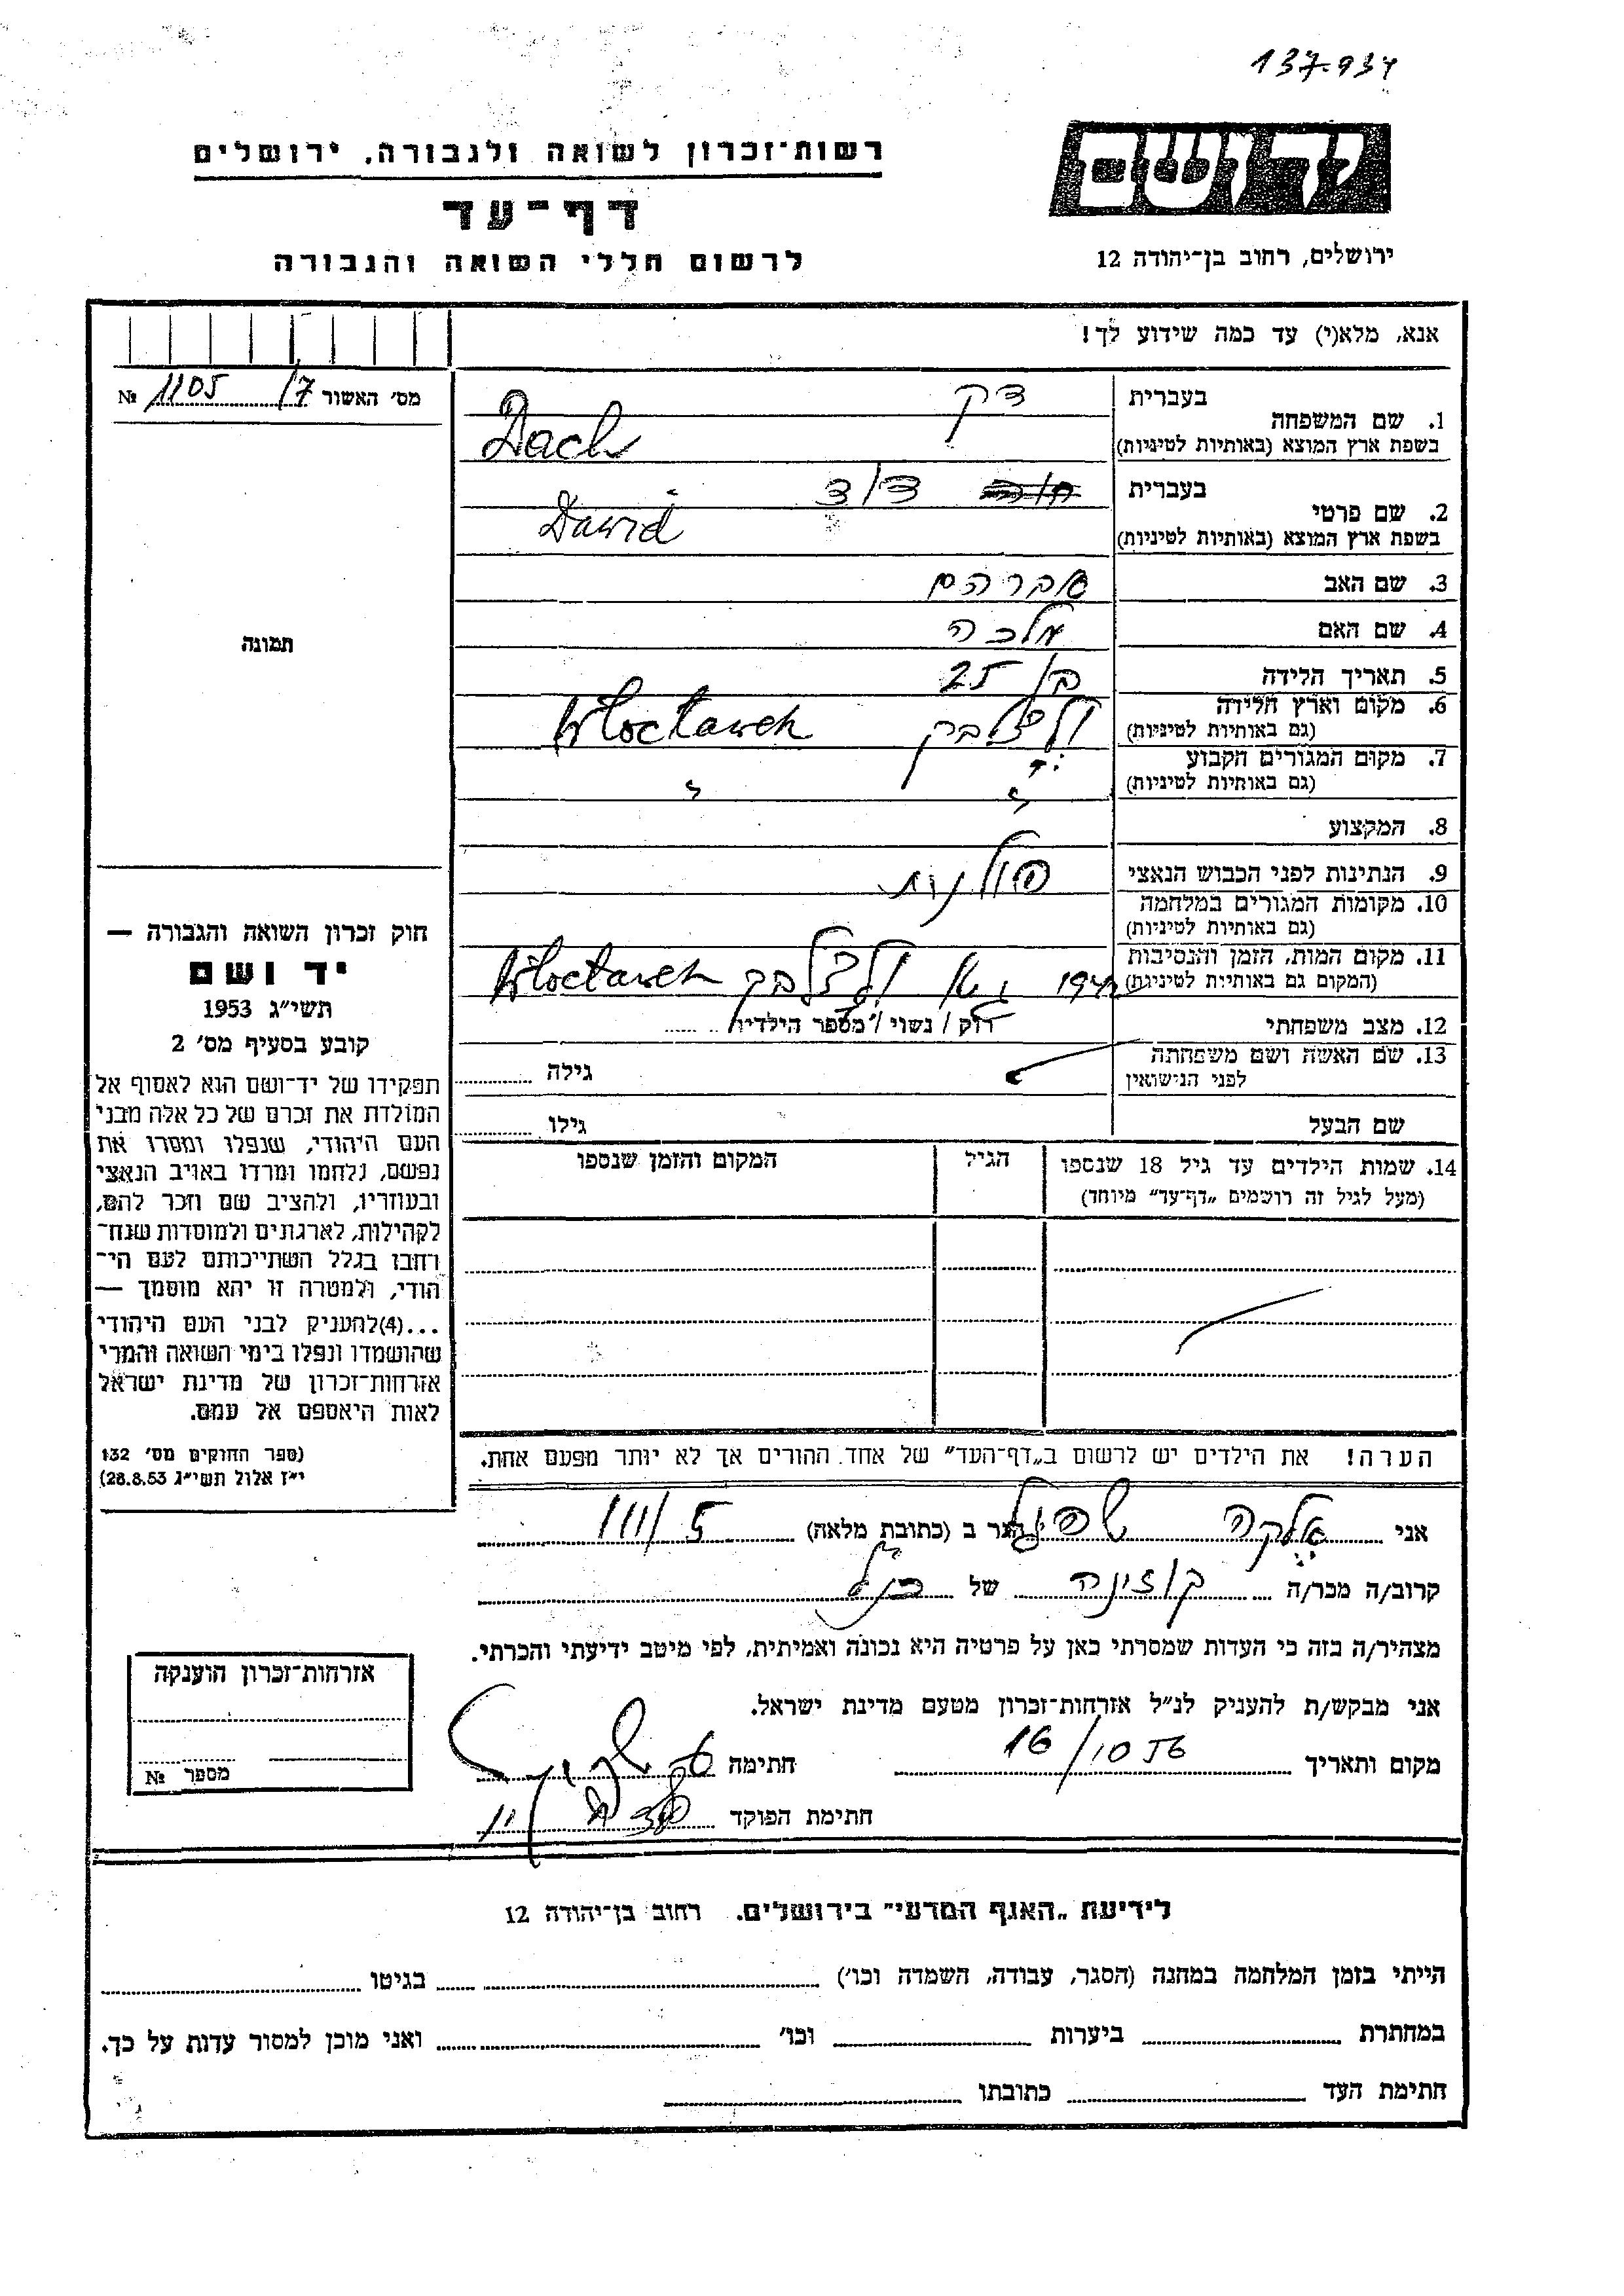 137.934
יד ושם
רשות־זכרון לשואה ולגבורה, ירושלים
דף־עד
לרשום חללי השואה והגבורה
ירושלים, רחוב בן־יהודה 12
אנא, מלא(י) עד כמה שידוע לך!
מס׳ האשור 7/ 1105 №
תמונה
1. שם המשפחה
בעברית דק
בשפת ארץ המוצא (באותיות לטיניות) Dach
2. שם פרטי
בעברית דוד
בשפת ארץ המוצא (באותיות לטיניות) Dawid
3. שם האב אברהם
4. שם האם מלכה
5. תאריך הלידה בן 25
6. מקום וארץ הלידה
(גם באותיות לטיניות) Wloclawek
7. מקום המגורים הקבוע
(גם באותיות לטיניות)
8. המקצוע
9. הנתינות לפני הכבוש הנאצי פולנית
10. מקומות המגורים במלחמה
(גם באותיות לטיניות)
11. מקום המות, הזמן והנסיבות
(המקום גם באותיות לטיניות) Wloclawek
12. מצב משפחתי רוק / נשוי / מספר הילדים
13. שם האשה ושם משפחתה
לפני הנישואין גילה
שם הבעל גילו
14. שמות הילדים עד גיל 18 שנספו הגיל המקום והזמן שנספו
(מעל לגיל זה רושמים „דף־עד״ מיוחד)
הערה! את הילדים יש לרשום ב„דף־העד״ של אחד ההורים אך לא יותר מפעם אחת.
חוק זכרון השואה והגבורה —
יד ושם
תשי״ג 1953
קובע בסעיף מס׳ 2
תפקידו של יד־ושם הוא לאסוף אל
המולדת את זכרם של כל אלה מבני
העם היהודי, שנפלו ומסרו את
נפשם, נלחמו ומרדו באויב הנאצי
ובעוזריו, ולהציב שם וזכר להם,
לקהילות, לארגונים ולמוסדות שנח־
רחבו בגלל השתייכותם לעם הי־
הודי, ולמטרה זו יהא מוסמך —
...(4)להעניק לבני העם היהודי
שהושמדו ונפלו בימי השואה והמרי
אזרחות־זכרון של מדינת ישראל
לאות היאספם אל עמם.
(ספר החוקים מס׳ 132
י״ז אלול תשי״ג 28.8.53)
אני אלקה הגר ב (כתובת מלאה) 5/111
קרוב/ה מכר/ה קוזינה של הנ״ל
מצהיר/ה בזה כי העדות שמסרתי כאן על פרטיה היא נכונה ואמיתית, לפי מיטב ידיעתי והכרתי.
אני מבקש/ת להעניק לנ״ל אזרחות־זכרון מטעם מדינת ישראל.
מקום ותאריך 16/10 56 חתימה
חתימת הפוקד
אזרחות־זכרון הוענקה
מספר №
לידיעת „האגף המדעי״ בירושלים. רחוב בן־יהודה 12
הייתי בזמן המלחמה במחנה (הסגר, עבודה, השמדה וכו׳) בגיטו
במחתרת ביערות וכו׳ ואני מוכן למסור עדות על כך.
חתימת העד כתובתו